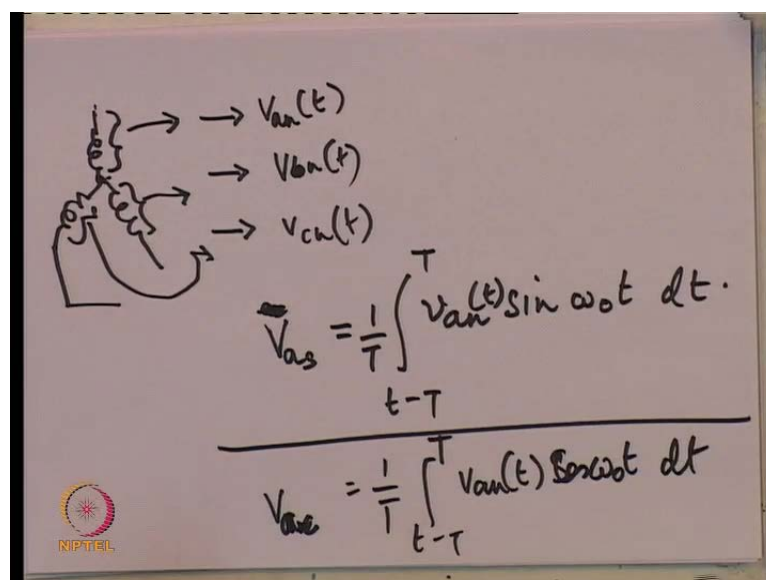 → → Van(t)
→ → Vbn(t)
→ → Vcn(t)
V̄as = 1/T ∫_{t-T}^{T} Van(t) sin ω₀t dt.
Vac = 1/T ∫_{t-T}^{T} Van(t) cos ω₀t dt
NPTEL